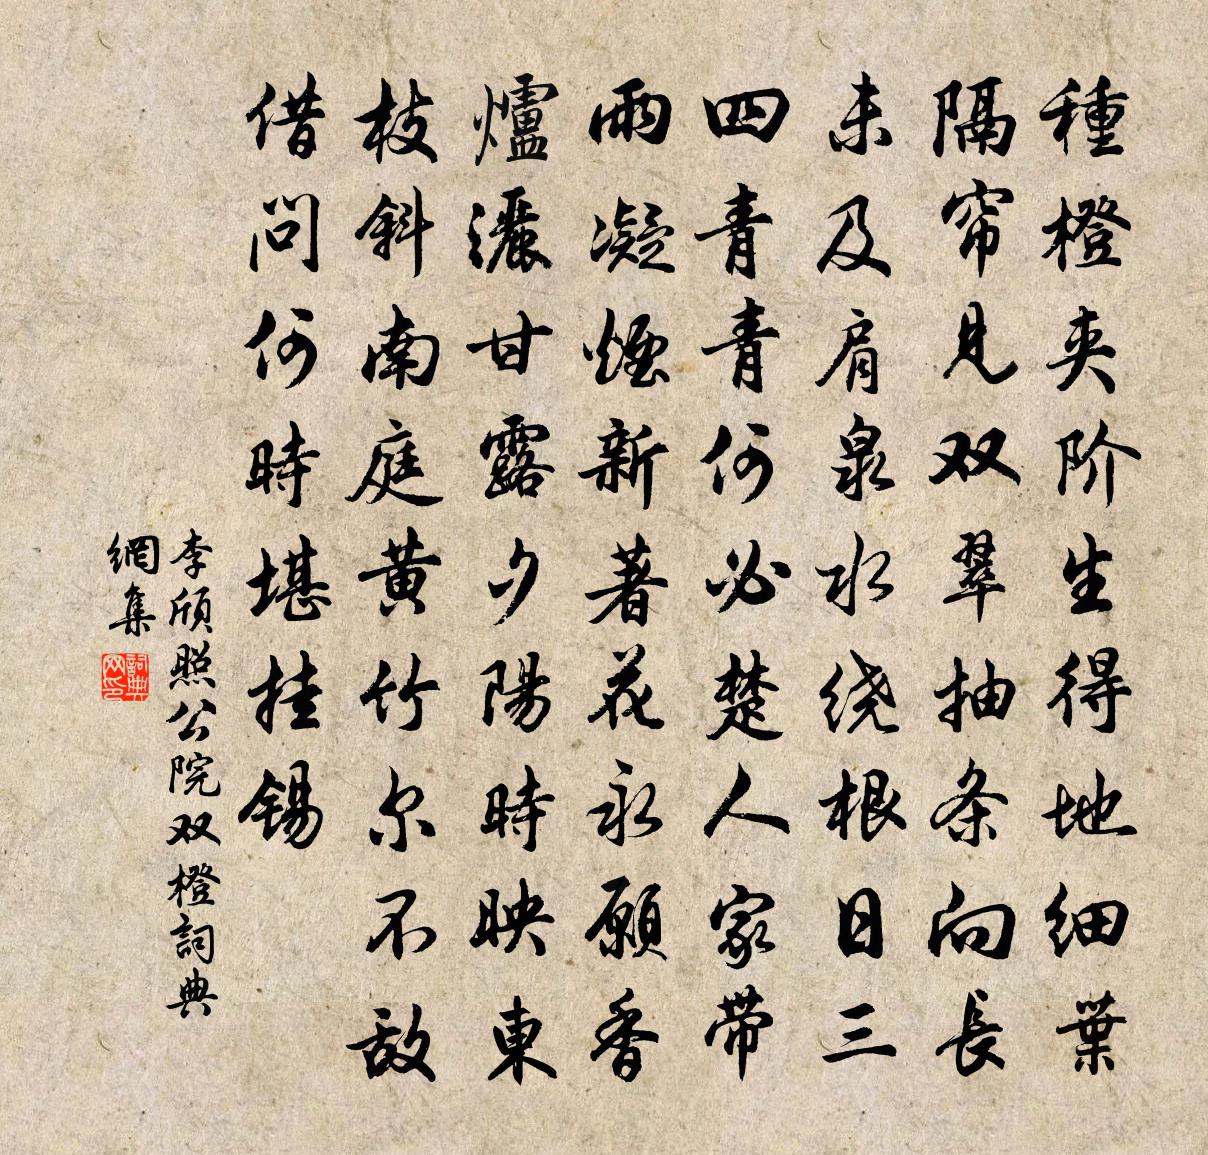 種橙夹阶生得地细葉
隔帘見双翠抽条向長
未及肩泉水绕根日三
四青青何必楚人家带
雨凝煙新著花永願香
爐灑甘露夕陽時映東
枝斜南庭黄竹尔不敌
借问何時堪挂锡
李颀照公院双橙詞典
網集
詞典
网印